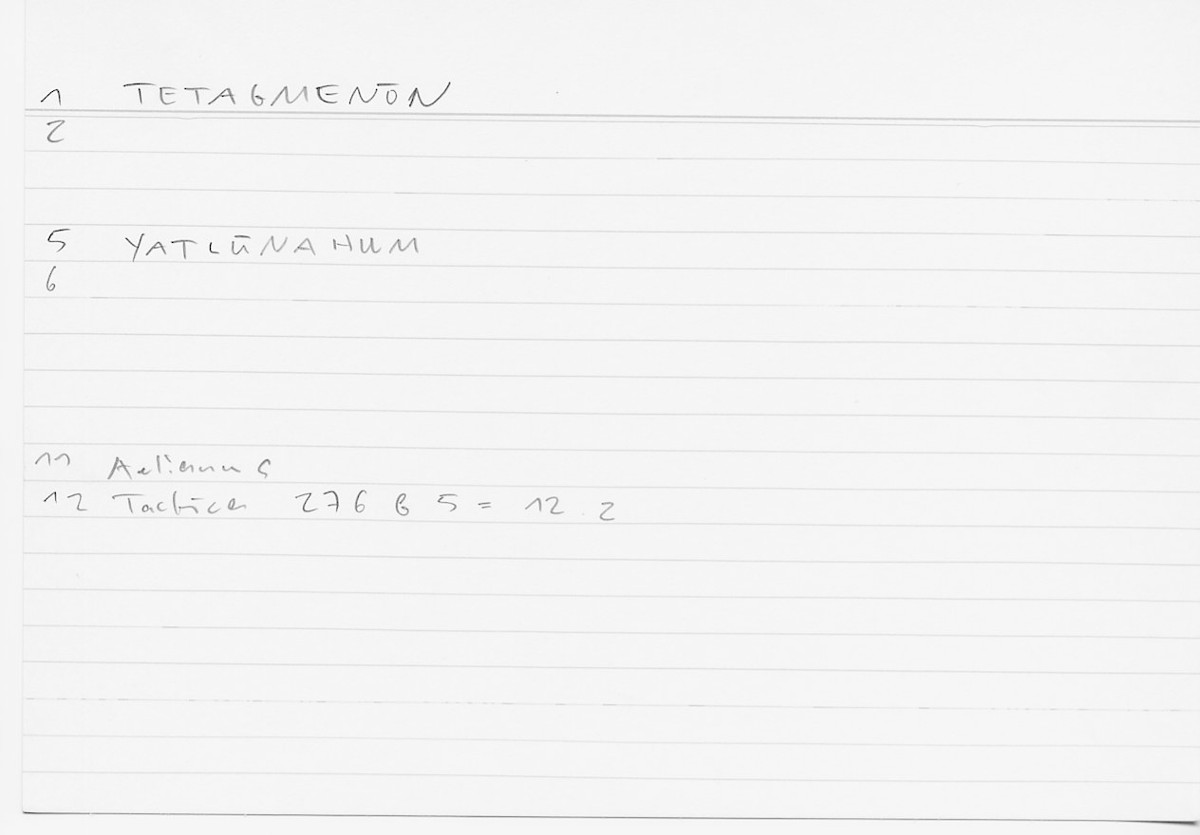 1 TETAGMENŌN
2
5 YATLŪNAHUM
6
11 Aelianus
12 Tactica 276 B 5 = 12.2